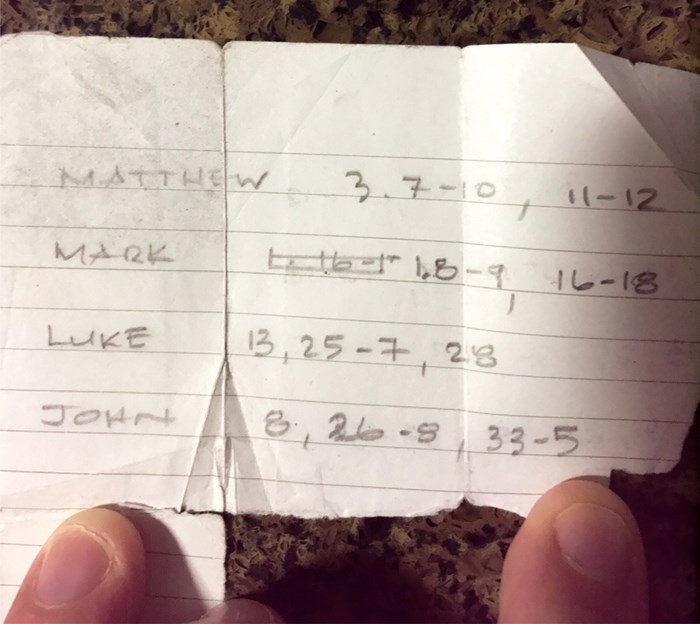 MATTHEW 3.7-10, 11-12
MARK 1.8-9, 16-18
LUKE 13,25-7,28
JOHN 8,26-8,33-5